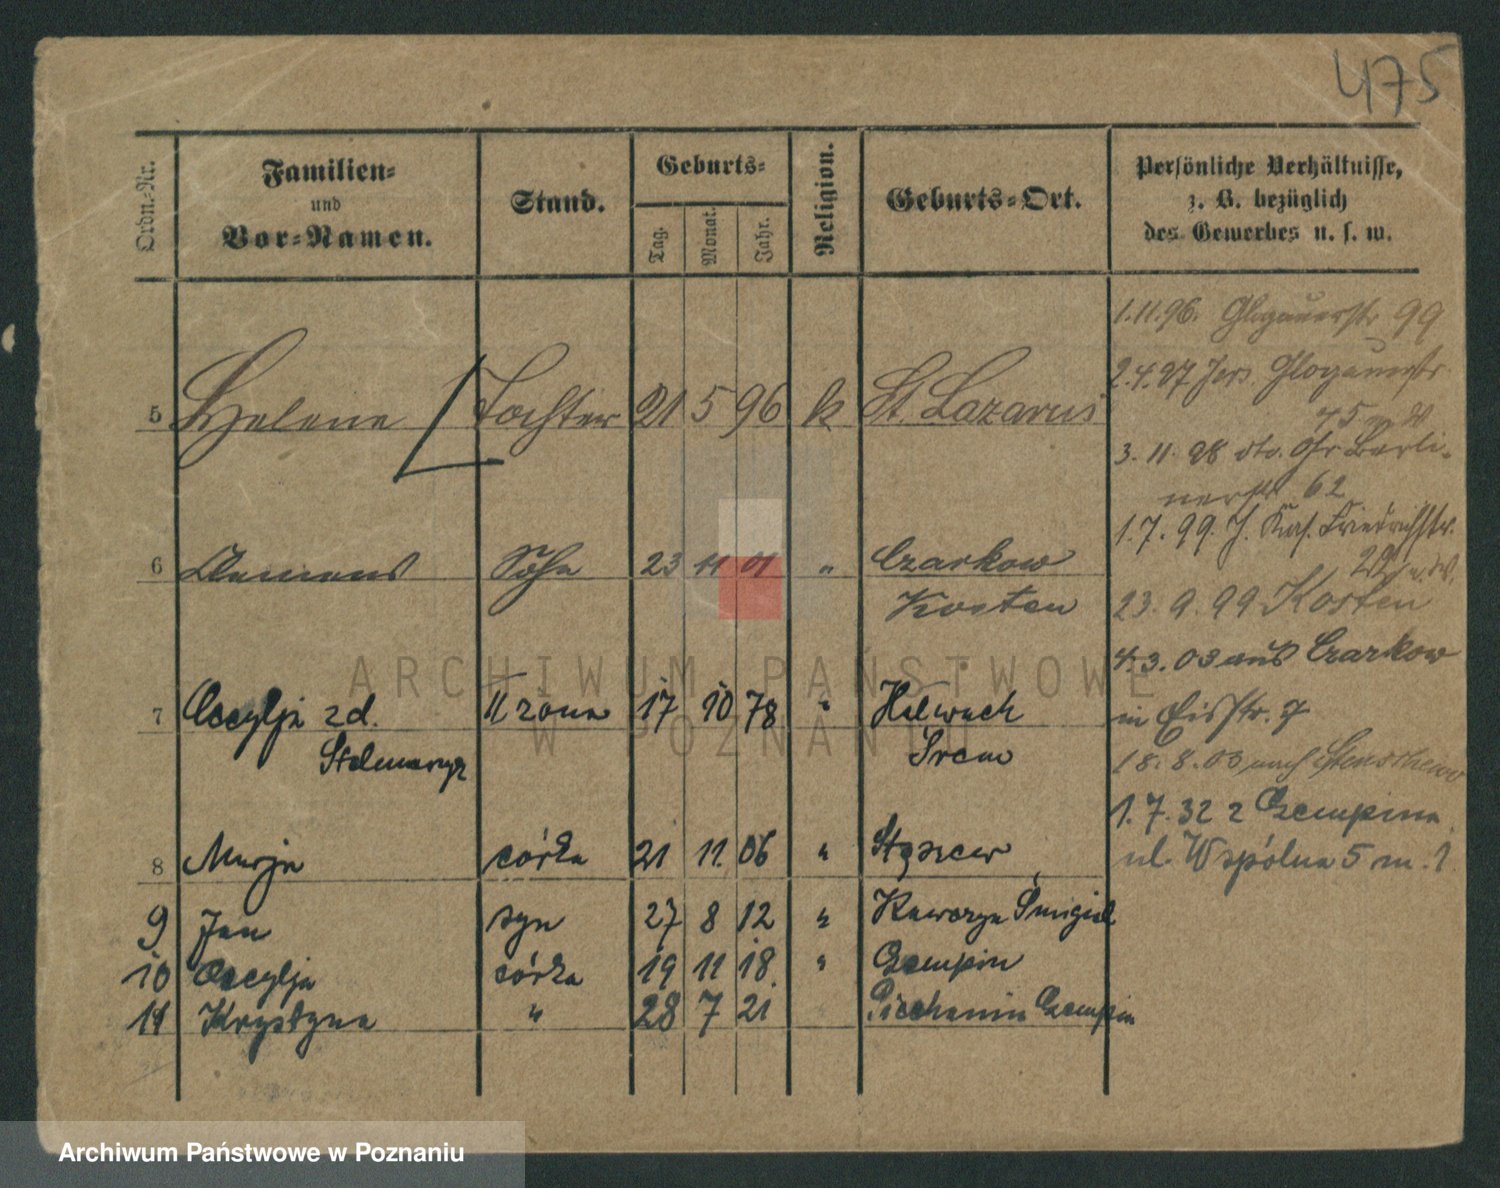 475
Ordn.-Nr.
Familien-
und
Vor-Namen.
Stand.
Geburts-
Tag.
Monat.
Jahr.
Religion.
Geburts-Ort.
Persönliche Verhältnisse,
z. B. bezüglich
des Gewerbes u. s. w.
5 Helene Tochter 21 5 96 k St. Lazarus
6 Clemens Sohn 23 11 01 " Czarkow
Kosten
7 Cecylja zd. II żona 17 10 78 " Helwach
Stelmaszyk Śrem
8 Marja córka 21 11. 06 " Stęszew
9 Jan syn 27 8 12 "
10 Cecylja córka 19 11 18. " Czempin
11 Krystyna " 28 7 21 Piechanin Czempin
1.11.96. Glogauerstr 99
2.4.97 Jers. Glogauerstr
75
3. 11. 98 dto. Gr. Berli-
nerstr 62
1.7.99. J. Friedrichstr.
23. 9. 99 Kosten
4.3.03 aus Czarkow
in Eisstr. 7
18.8.03 nach Stenschewo
1.7.32 z Czempina
ul. Wspólna 5 m. 1
ARCHIWUM PAŃSTWOWE
W POZNANIU
Archiwum Państwowe w Poznaniu